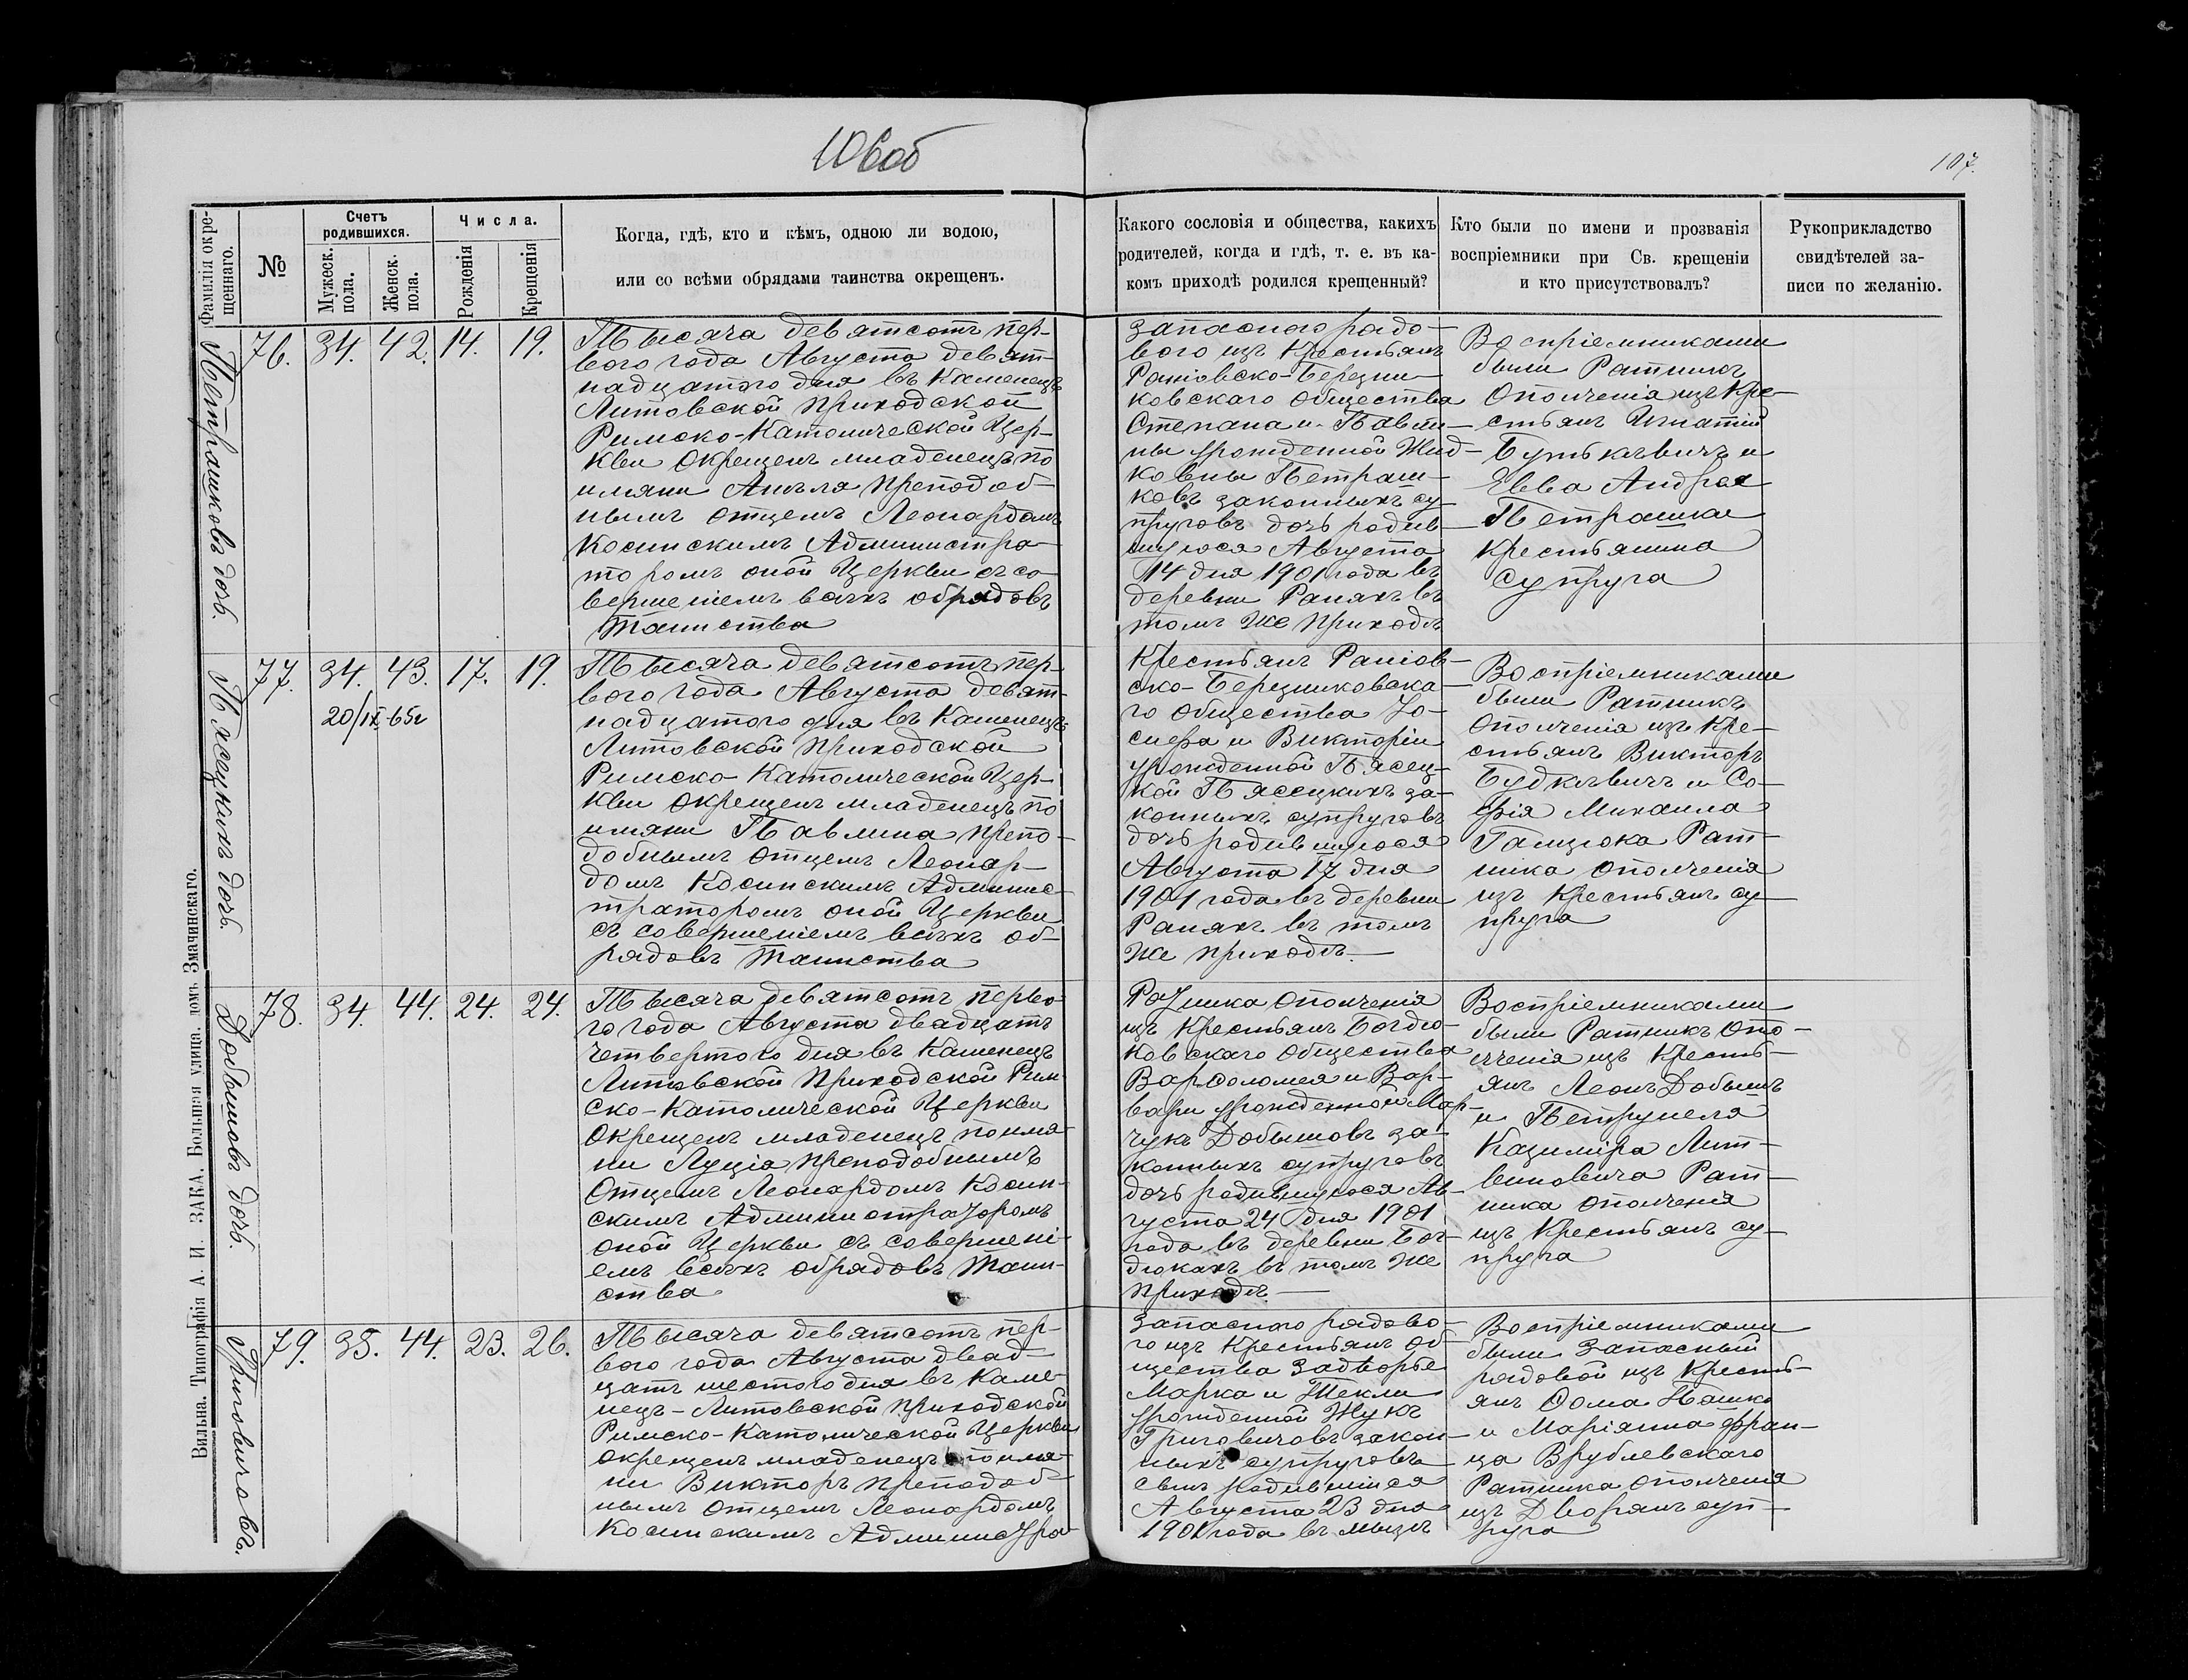 106 об
107.
Фамилія окре-
щеннаго.
№
Счетъ
родившихся.
Мужеск.
пола.
Женск.
пола.
Числа.
Рожденія
Крещенія
Когда, гдѣ, кто и кѣмъ, одною ли водою,
или со всѣми обрядами таинства окрещенъ.
Какого сословія и общества, какихъ
родителей, когда и гдѣ, т. е. въ ка-
комъ приходѣ родился крещенный?
Кто были по имени и прозванія
воспріемники при Св. крещеніи
и кто присутствовалъ?
Рукоприкладство
свидѣтелей за-
писи по желанію.
Петрашковъ дочь.
76. 34. 42. 14. 19.
Тысяча девятсотъ пер-
вого года Августа девят-
надцатого дня въ Каменецъ
Литовской приходской
Римско-Католической Цер-
кви окрещенъ младенецъ по
имяни Анѣля преподоб-
нымъ отцемъ Леонардомъ
Косинскимъ Администра-
торомъ оной Церкви съ со-
вершеніемъ всѣхъ обрядовъ
Таинства
запасного рядо-
вого изъ Крестьянъ
Раніовско-Березни-
ковскаго общества
Степана и Павли-
ны урожденной Жид-
ковны Петраш-
ковъ законныхъ су-
пруговъ дочь родив-
шуюся Августа
14 дня 1901 года въ
деревни Раняхъ въ
томъ же приходѣ
Воспріемниками
были Ратникъ
Ополченія изъ Кре-
стьянъ Игнатій
Будькевичъ и
Евва Андрея
Петрашка
Крестьянина
супруга
Пясецкихъ дочь.
77. 34. 43. 17. 19.
20/IX-65г
Тысяча девятсотъ пер-
вого года Августа девят-
надцатого дня въ Каменецъ
Литовской приходской
Римско-Католической Цер-
кви окрещенъ младенецъ по
имяни Павлина препо-
добнымъ отцемъ Леонар-
домъ Косинскимъ Админис-
траторомъ оной Церкви
съ совершеніемъ всѣхъ об-
рядовъ Таинства
Крестьянъ Раніов-
ско-Березниковска-
го общества Іо-
сифа и Викторіи
урожденной Пясец-
кой Пясецкихъ за-
конныхъ супруговъ
дочь родившуюся
Августа 17 дня
1901 года въ деревни
Раняхъ въ томъ
же приходѣ.
Воспріемниками
были Ратникъ
Ополченія изъ Кре-
стьянъ Викторъ
Будкѣвичъ и Со-
фія Михаила
Ганцюка Рат-
ника ополченія
изъ Крестьянъ су-
пруга
Добышовъ дочь.
78. 34. 44. 24. 24.
Тысяча девятсотъ перво-
го года Августа двадцать
четвертого дня въ Каменецъ
Литовской приходской Рим-
ско-Католической Церкви
окрещенъ младенецъ по имя-
ни Луція преподобнымъ
Отцемъ Леонардомъ Косин-
скимъ Администраторомъ
оной Церкви съ совершені-
емъ всѣхъ обрядовъ Таин-
ства
Ратника ополченія
изъ Крестьянъ Богдю-
ковскаго общества
Варфоломея и Вар-
вары урожденной Мар-
чукъ Добышовъ за-
конныхъ супруговъ
дочь родившуюся Ав-
густа 24 дня 1901
года въ деревни Бог-
дюкахъ въ томъ же
приходѣ.
Воспріемниками
были Ратникъ Опо-
лченія изъ Кресть-
янъ Леонъ Добышъ
и Петрунеля
Казиміра Лит-
виновича Рат-
ника ополченія
изъ Крестьянъ су-
пруга
Григовичовъ.
79. 35. 44. 23. 26.
Тысяча девятсотъ пер-
вого года Августа двад-
цать шестого дня въ Каме-
нецъ-Литовской приходской
Римско-Католической Церкви
окрещенъ младенецъ по имя-
ни Викторъ преподоб-
нымъ отцемъ Леонардомъ
Косинскимъ Администра-
запасного рядово-
го изъ Крестьянъ об-
щества Задворье
Марка и Текли
урожденной Жукъ
Григовичовъ закон-
ныхъ супруговъ
сынъ родившійся
Августа 23 дня
1901 года въ мызѣ
Воспріемниками
были Запасный
рядовой изъ Кресть-
янъ Ѳома Пашко
и Маріянна Фран-
ца Врублевскаго
Ратника ополченія
изъ Дворянъ суп-
руга
Вильна. Типографія А. И. ЗАКА. Большая улица. домъ Змачинскаго.